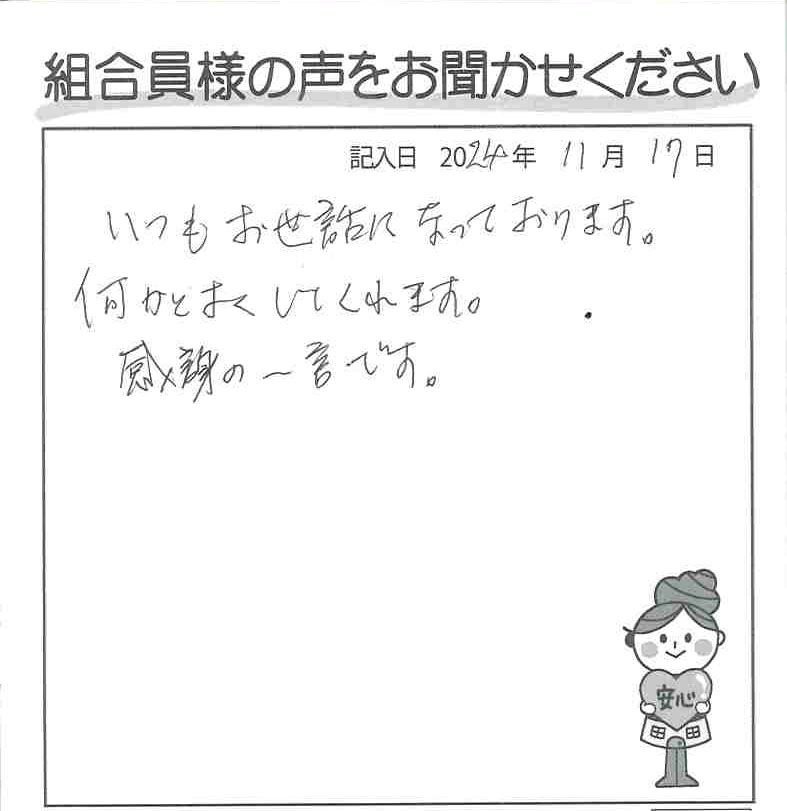 組合員様の声をお聞かせください
記入日 2024年 11月 17日
いつもお世話になっております。
何かとよくしてくれます。
感謝の一言です。
安心